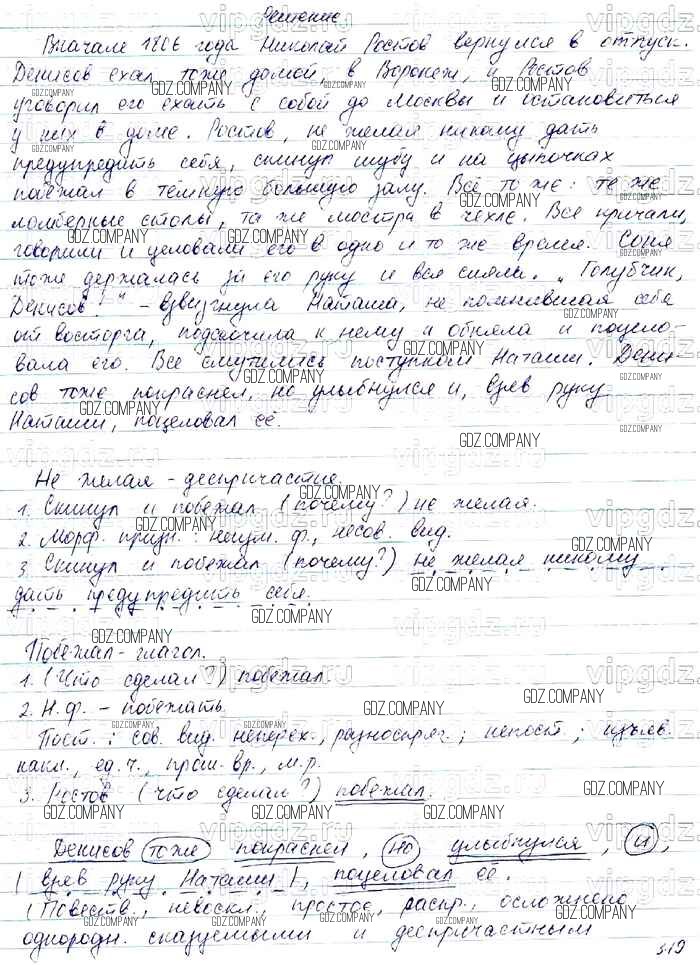 Решение
Вначале 1806 года Николай Ростов вернулся в отпуск.
Денисов ехал тоже домой, в Воронеж, и Ростов
уговорил его ехать с собой до Москвы и остановиться
у них в доме. Ростов, не желая никому дать
предупредить себя, скинул шубу и на цыпочках
побежал в тёмную большую залу. Всё то же: те же
ломберные столы, та же люстра в чехле. Все кричали,
говорили и целовали его в одно и то же время. Соня
тоже держалась за его руку и вся сияла. „Голубчик,
Денисов!" - взвизгнула Наташа, не помнившая себя
от восторга, подскочила к нему и обняла и поцело-
вала его. Все смутились поступком Наташи. Дени-
сов тоже покраснел, но улыбнулся и, взяв руку
Наташи, поцеловал её.
Не желая - деепричастие.
1. Скинул и побежал (почему?) не желая.
2. Морф. призн.: неизм. ф., несов. вид.
3. Скинул и побежал (почему?) не желая никому
дать предупредить себя.
Побежал - глагол.
1. (Что сделал?) побежал.
2. Н.ф. - побежать.
Пост.: сов. вид, неперех., разноспряг.; непост.; изъяв.
накл., ед.ч., прош. вр., м.р.
3. Ростов (что сделал?) побежал.
Денисов тоже покраснел, но улыбнулся, и,
| взяв руку Наташи |, поцеловал её.
(Повеств., невоскл., простое, распр., осложнено
однородн. сказуемыми и деепричастным
319
vipgdz.ru
GDZ.COMPANY